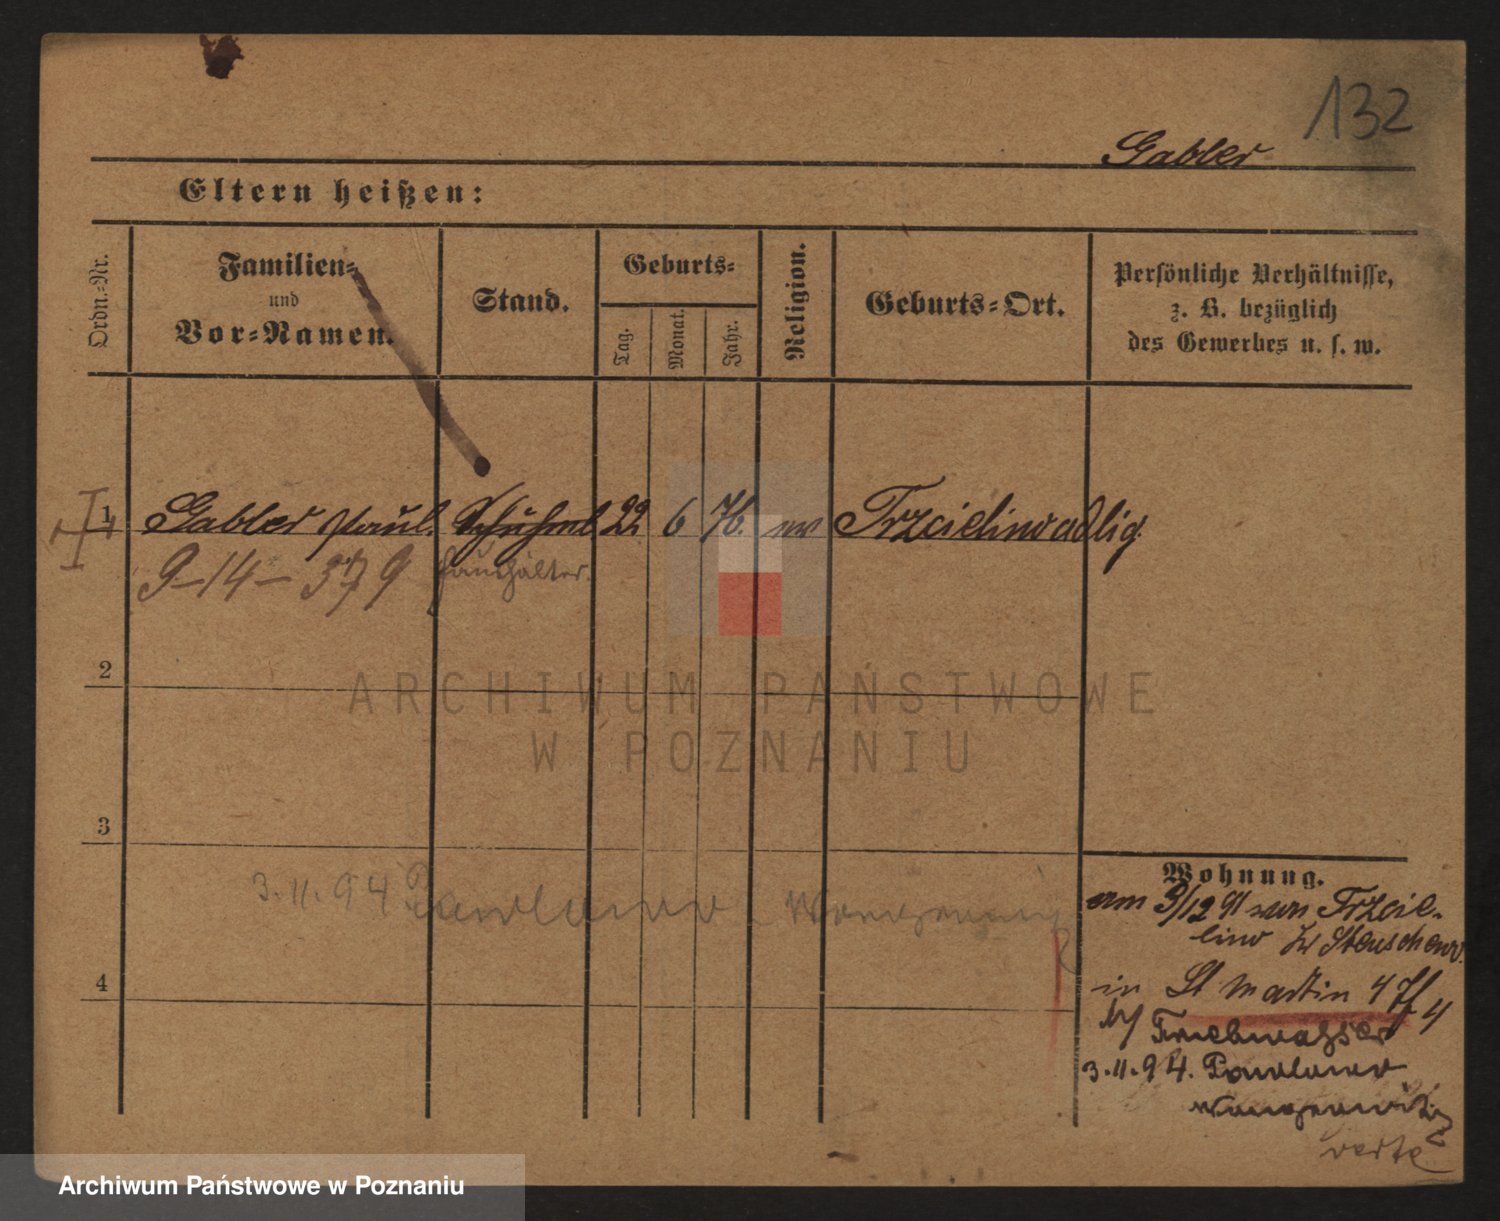 132
Gabler
Eltern heißen:
Ordn.-Nr.
Familien-
und
Vor-Namen.
Stand.
Geburts-
Tag.
Monat.
Jahr.
Religion.
Geburts-Ort.
Persönliche Verhältnisse,
z. B. bezüglich
des Gewerbes u. s. w.
1 Gabler Paul. 22 6 76. ev Trzcielino adlig.
9-14-379 haushälter.
2
ARCHIWUM PAŃSTWOWE
W POZNANIU
3
Wohnung.
3.11.94 Pawlowo
am 3/12 91 von Trzcie-
lino
in St Martin 4
3.11.94. Pawlowo
Wongrowitz
verte
4
Archiwum Państwowe w Poznaniu